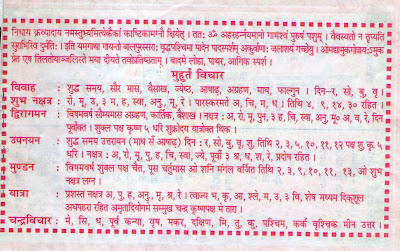 निधाय क्रव्यादाय नमस्तुभ्यमित्येकैकां काष्टिकामग्नौ क्षिपेत् । ततः ॐ अहरहर्न्नयमानो गामश्वं पुरुषं पशुम् । वैवस्वतो न तृप्यति
सुराभिरिव दुर्मतिः । इति यमगाथा गायन्तो बालपुरस्सराः वृद्धपश्चिमा पादेन पादस्पर्शम् अकुर्वाणः जलाशयं गच्छेयुः । ओमद्यामुकगोत्रायऽमुक
प्रेत एष तिलतोयाञ्जलिस्ते मया दीयते तवोपतिष्ठताम् । बादमे लोहा, पाथर, आगिक स्पर्श ।
मुहूर्त विचार
विवाह : शुद्ध समय, सौर मास, वैशाख, ज्येष्ठ, आषाढ़, अग्रहण, माघ, फाल्गुन । दिन-र, सो, बु, वृ ।
शुभ नक्षत्र : रो, मृ, उ ३ म, ह, स्वा, अनु, मू, रे । पारस्करमते अ, चि, म, ध । तिथि ४, ९, १४, ३० रहित ।
द्विरागमन : विषमवर्ष सौम्यमास अग्रहण, फाल्गुन, वैशाख । नक्षत्र : अ, रो, मृ, पुन, ३ ह, चि, स्वा, अनु, मू० अ, व, रे, दिन
पूर्वोक्त । शुक्ल पक्ष कृष्ण ५ धरि शुक्रोदय यात्रोक्त थिक ।
उपनयन : शुद्ध समय उत्तरायन (माघ सँ आषाढ़) दिन : र, सो, बु, वृ, शु, तिथि २, ३, ५, १०, ११, १२ पक्ष शु, कृ ५
धरि । नक्षत्र : अ, रो, मृ, पु, ह, चि, स्वा, ज्ये, पूर्वा ३ श्र, ध, श, रे, प्रदोष रहित ।
मुण्डन : विषमवर्ष शुक्ल पक्ष चैत, पूस चतुर्मास ओ शनि मंगल वर्जित तिथि २, ३, ९, १०, ११, १३, ओ शुभ
नक्षत्र लग्न ।
यात्रा : प्रशस्त नक्षत्र अ, पु, ह, अनु, मृ, श्र, रे । त्याज्य भ, कृ, आ, श्ले, म, उ ३, वि, शेष मध्यम दिक्शूल
अधपहरा रहित अमृतादियोगमे सम्मुख चन्द्र कृष्णपक्ष मे तारा ।
चन्द्रविचार : मे, सि, ध, पूर्व कन्या, वृष, मकर, दक्षिण, मि, तु, कु, पश्चिम, कर्क वृश्चिक मीन उत्तर ।